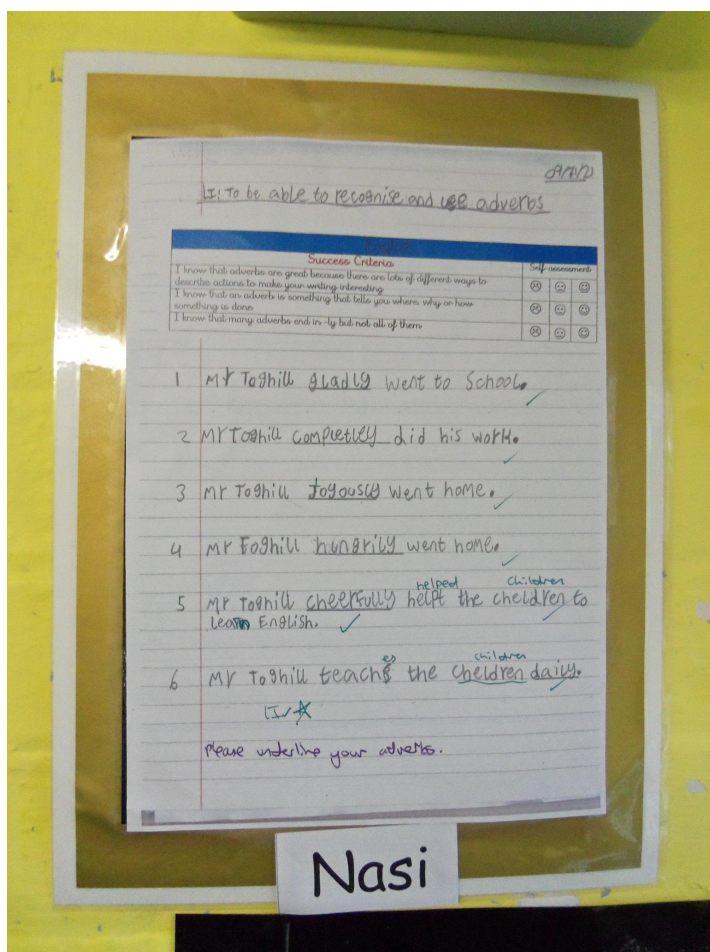 LI: To be able to recognise and use adverbs
Success Criteria
Self-assessment
I know that adverbs are great because there are lots of different ways to
describe actions to make your writing interesting
I know that an adverb is something that tells you where, why or how
something is done
I know that many adverbs end in -ly but not all of them
1 Mr Toghill gladly went to School.
2 Mr Toghill completley did his work.
3 Mr Toghill Joyously went home.
4 Mr Toghill hungrily went home.
helped children
5 Mr Toghill cheerfully helpt the cheldren to
learn English.
es children
6 Mr Toghill teachs the cheldren daily.
LI
Please underline your adverbs.
Nasi